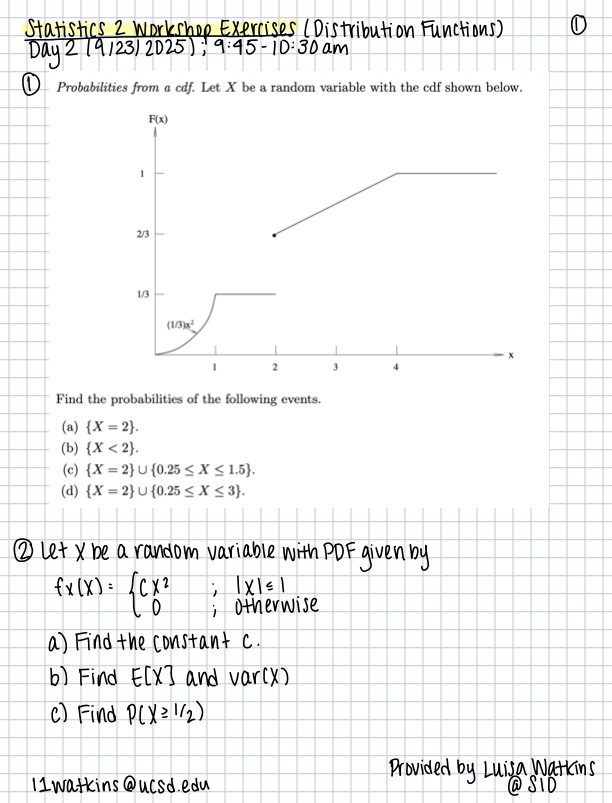 Statistics 2 Workshop Exercises (Distribution Functions) ①
Day 2 (9/23/2025); 9:45-10:30am
① Probabilities from a cdf. Let X be a random variable with the cdf shown below.
F(x)
1
2/3
1/3
(1/3)x²
x
1 2 3 4
Find the probabilities of the following events.
(a) {X = 2}.
(b) {X < 2}.
(c) {X = 2} ∪ {0.25 ≤ X ≤ 1.5}.
(d) {X = 2} ∪ {0.25 ≤ X ≤ 3}.
② Let X be a random variable with PDF given by
fx(x) = { cx² ; |x| ≤ 1
0 ; otherwise
a) Find the constant c.
b) Find E[X] and var(X)
c) Find P(X ≥ 1/2)
Provided by Luisa Watkins
l1watkins@ucsd.edu @ SIO